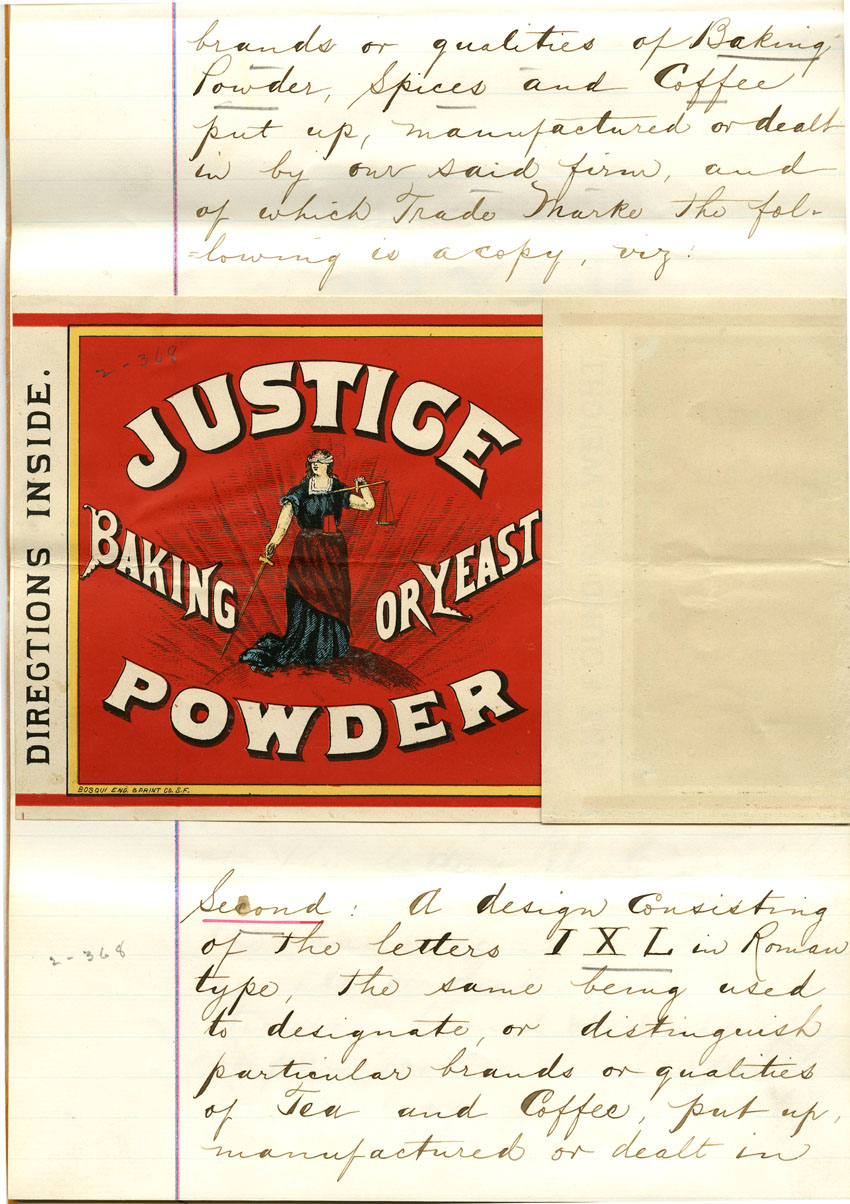 brands or qualities of Baking
Powder, Spices and Coffee
put up, manufactured or dealt
in by our said firm, and
of which Trade Marke the fol-
=lowing is a copy, viz:
DIRECTIONS INSIDE.
2-368
JUSTICE
BAKING OR YEAST
POWDER
BOSQUI ENG. & PRINT CO. S.F.
Second: A design Consisting
2-368
of the letters I X L in Roman
type, the same being used
to designate, or distinguish
particular brands or qualities
of Tea and Coffee, put up,
manufactured or dealt in